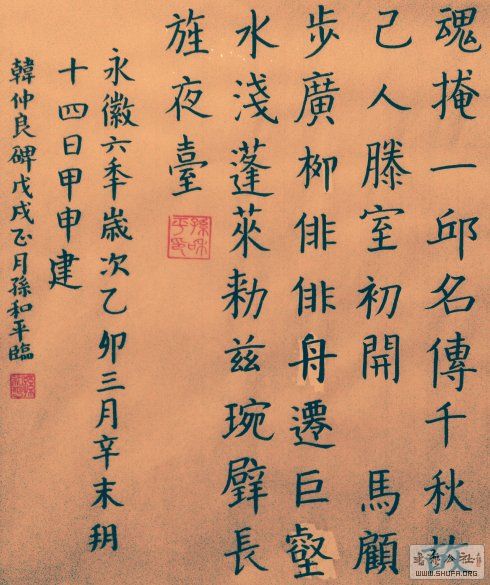 魂掩一邱名傳千秋
己人滕室初開 馬顧
步廣柳俳俳舟遷巨壑
水淺蓬萊勑茲琬璧長
旌夜臺
永徽六秊歲次乙卯三月辛未朔
十四日甲申建
韓仲良碑戊戌正月孫和平臨
孫和平印
書法公社
WWW.SHUFA.ORG